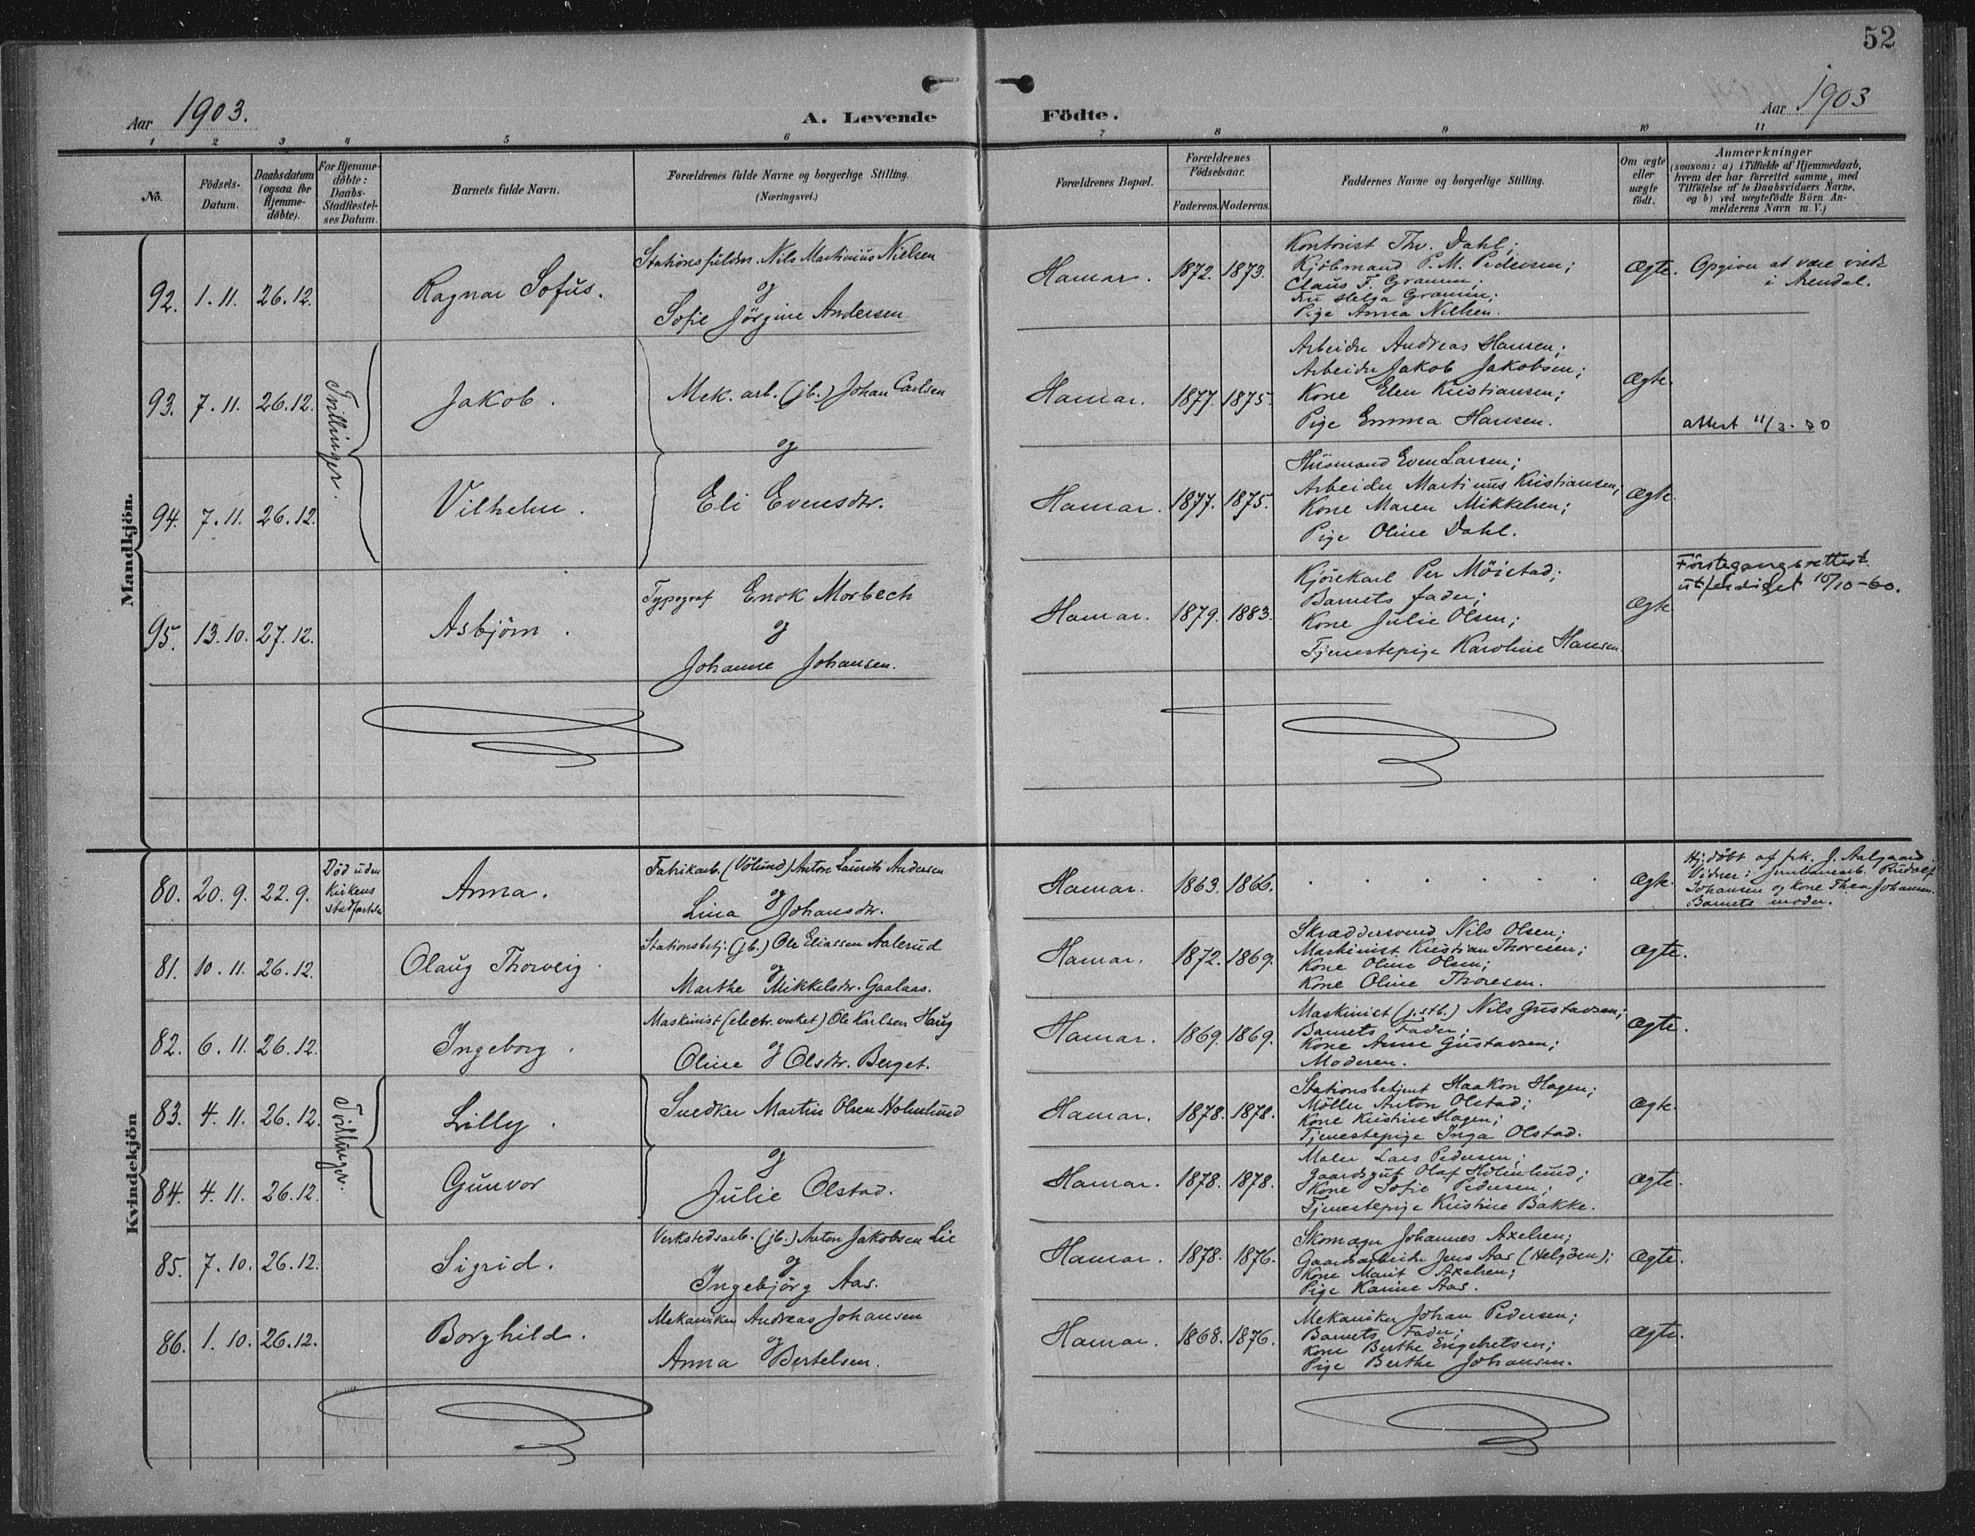 52
Aar 1903.
A. Levende
Födte.
Aar 1903
1 2 3 4 5 6 7 8 9 10 11
No.
Födsels-Datum.
Daabsdatum (ogsaa for Hjemmedöbte).
For Hjemmedöbte: Daabs-Stadfæstelses Datum.
Barnets fulde Navn.
Forældrenes fulde Navne og borgerlige Stilling.
(Næringsvei.)
Forældrenes Bopæl.
Forældrenes Födselsaar.
Faderens. Moderens.
Faddernes Navne og borgerlige Stilling.
Om ægte eller uægte födt.
Anmærkninger
(saasom: a) i Tilfælde af Hjemmedaab,
hvem der har forrettet samme, med
Tilföielse af to Daabsvidners Navne,
og b) ved uægtefödte Börn Anmelderens Navn m. V.)
Mandkjön.
92. 1. 11. 26. 12. Ragnar Sofus.
Stationsfuldm. Nils Martinius Nielsen
og
Sofie Jörgine Andersen
Hamar. 1872. 1873.
Kontorist Thv. Dahl;
Kjöbmand P. M. Pedersen;
Claus F. Gramm;
Fru Helga Gramm;
Pige Anna Nielsen.
Ægte. Opgiven at være viede
i Arendal.
Tvillinger.
93. 7. 11. 26. 12. Jakob.
Mek. arb. (jb.) Johan Carlsen
og
Hamar. 1877. 1875.
Arbeider Andreas Hansen;
Arbeider Jakob Jakobsen;
Kone Elen Kristiansen;
Pige Emma Hansen.
Ægte.
attest 11/3-
94. 7. 11. 26. 12. Vilhelm.
Eli Evensdtr.
Hamar. 1877. 1875.
Husmand Even Larsen;
Arbeider Martinus Kristiansen;
Kone Maren Mikkelsen;
Pige Oline Dahl.
Ægte.
95. 13. 10. 27. 12. Asbjörn.
Typograf Enok Morbech
og
Johanne Johansen.
Hamar. 1879. 1883.
Kjörekarl Per Möistad;
Barnets fader;
Kone Julie Olsen;
Tjenestepige Karoline Hansen.
Ægte
Förstegangsattest
utferdiget 10/10-60.
Kvindekjön
80. 20. 9. 22. 9.
Död uden
Kirkens
stadfæstelse
Anna.
Fabrikarb. (Völund) Anton Laurits Andersen
og
Lina Johansdtr.
Hamar. 1863. 1866.
Ægte.
Hj. döbt af frk. J. Aalgaard.
Vidner: Jernbanearb. Rudolf
Johansen og kone Thea Johansen.
Barnets moder.
81. 10. 11. 26. 12. Olaug Thorveig.
Stationsbetj. (jb.) Ole Eliassen Aalerud
og
Marthe Mikkelsdtr. Gaalaas.
Hamar. 1872. 1869.
Skræddersvend Nils Olsen;
Maskinist Kristian Thoresen;
Kone Oline Olsen;
Kone Oline Thoresen.
Ægte.
82. 6. 11. 26. 12. Ingeborg.
Maskinist (electr. verket) Ole Karlsen Haug
og
Oline Olsdtr. Berget.
Hamar. 1869. 1869.
Maskinist (j.stb.) Nils Gustavsen;
Barnets Fader;
Kone Anne Gustavsen;
Moderen.
Ægte.
Tvillinger.
83. 4. 11. 26. 12. Lilly.
Snedker Martin Olsen Holmlund
og
Hamar. 1878. 1878.
Stationsbetjent Haakon Hagen;
Möller Anton Olstad;
Kone Kristine Hagen;
Tjenestepige Inga Olstad.
Ægte.
84. 4. 11. 26. 12. Gunvor
Julie Olstad.
Hamar. 1878. 1878.
Maler Lars Pedersen;
Gaardsgut Olaf Holmlund;
Kone Sofie Pedersen;
Tjenestepige Kristine Bakke.
Ægte.
85. 7. 10. 26. 12. Sigrid.
Verkstedsarb. (jb.) Anton Jakobsen Lie
og
Ingebjörg Aas.
Hamar. 1878. 1876.
Skomager Johannes Axelsen;
Gaardsarbeider Jens Aas (Helgöen);
Kone Marit Axelsen;
Pige Karine Aas.
Ægte.
86. 1. 10. 26. 12. Borghild.
Mekaniker Andreas Johansen
og
Anna Bertelsen.
Hamar. 1868. 1876.
Mekaniker Johan Pedersen;
Barnets Fader;
Kone Berthe Engebretsen;
Pige Berthe Johansen.
Ægte.